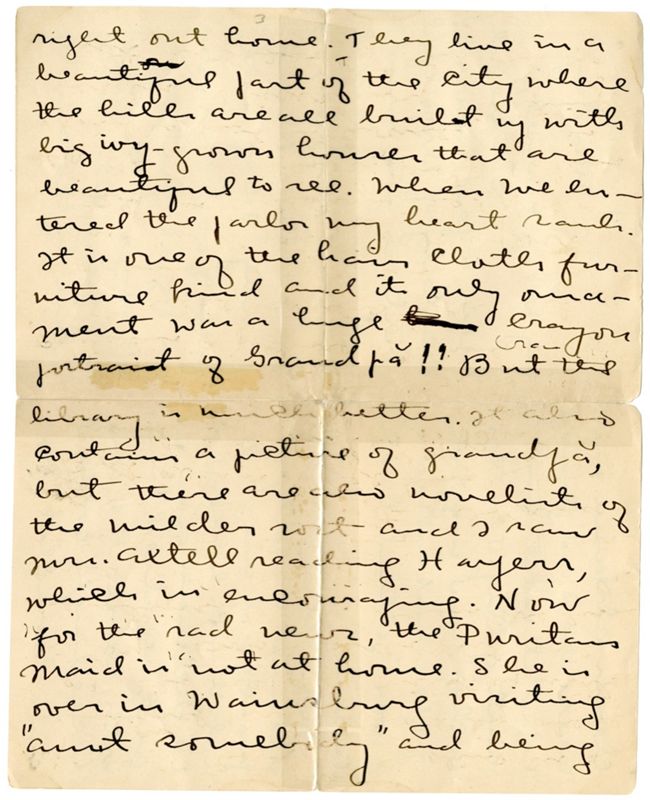 3
right out home. They live in a
beautiful part of the city where
the hills are all built up with
big ivy-grown houses that are
beautiful to see. When we en-
tered the parlor my heart sank.
It is one of the hair cloth fur-
niture kind and its only orna-
ment was a huge crayon
crayon
portrait of Grandpă!! But the
library is much better. It also
contains a picture of grandpă,
but there are also novelists of
the milder sort and I saw
Mrs. Axtell reading Harpers,
which is encouraging. Now
for the "sad news, the Puritan
Maid is" not at home. She is
over in Wainsburg visiting
"aunt somebody" and being